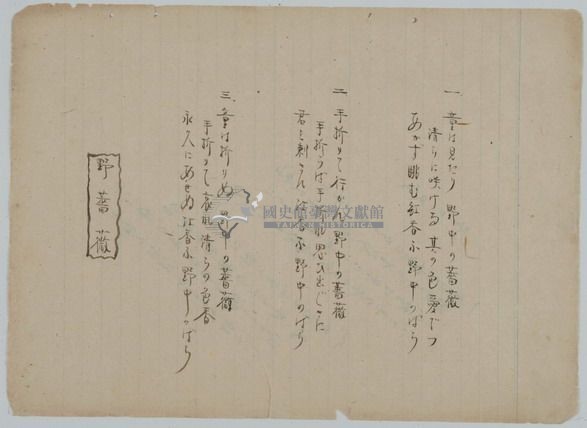 一 童は見たり 野中の薔薇
清らに咲ける 其の色愛でつ
あかず眺む 紅香ふ 野中のばら
二 手折りて行かん 野中の薔薇
手折らば手折れ 思ひ出ぐさに
君を刺さん 紅香ふ 野中のばら
三 童は折りぬ 野中の薔薇
手折りて哀れ 清らの色香
永久にあせぬ 紅香ふ 野中のばら
野薔薇
國史館臺灣文獻館
TAIWAN HISTORICA